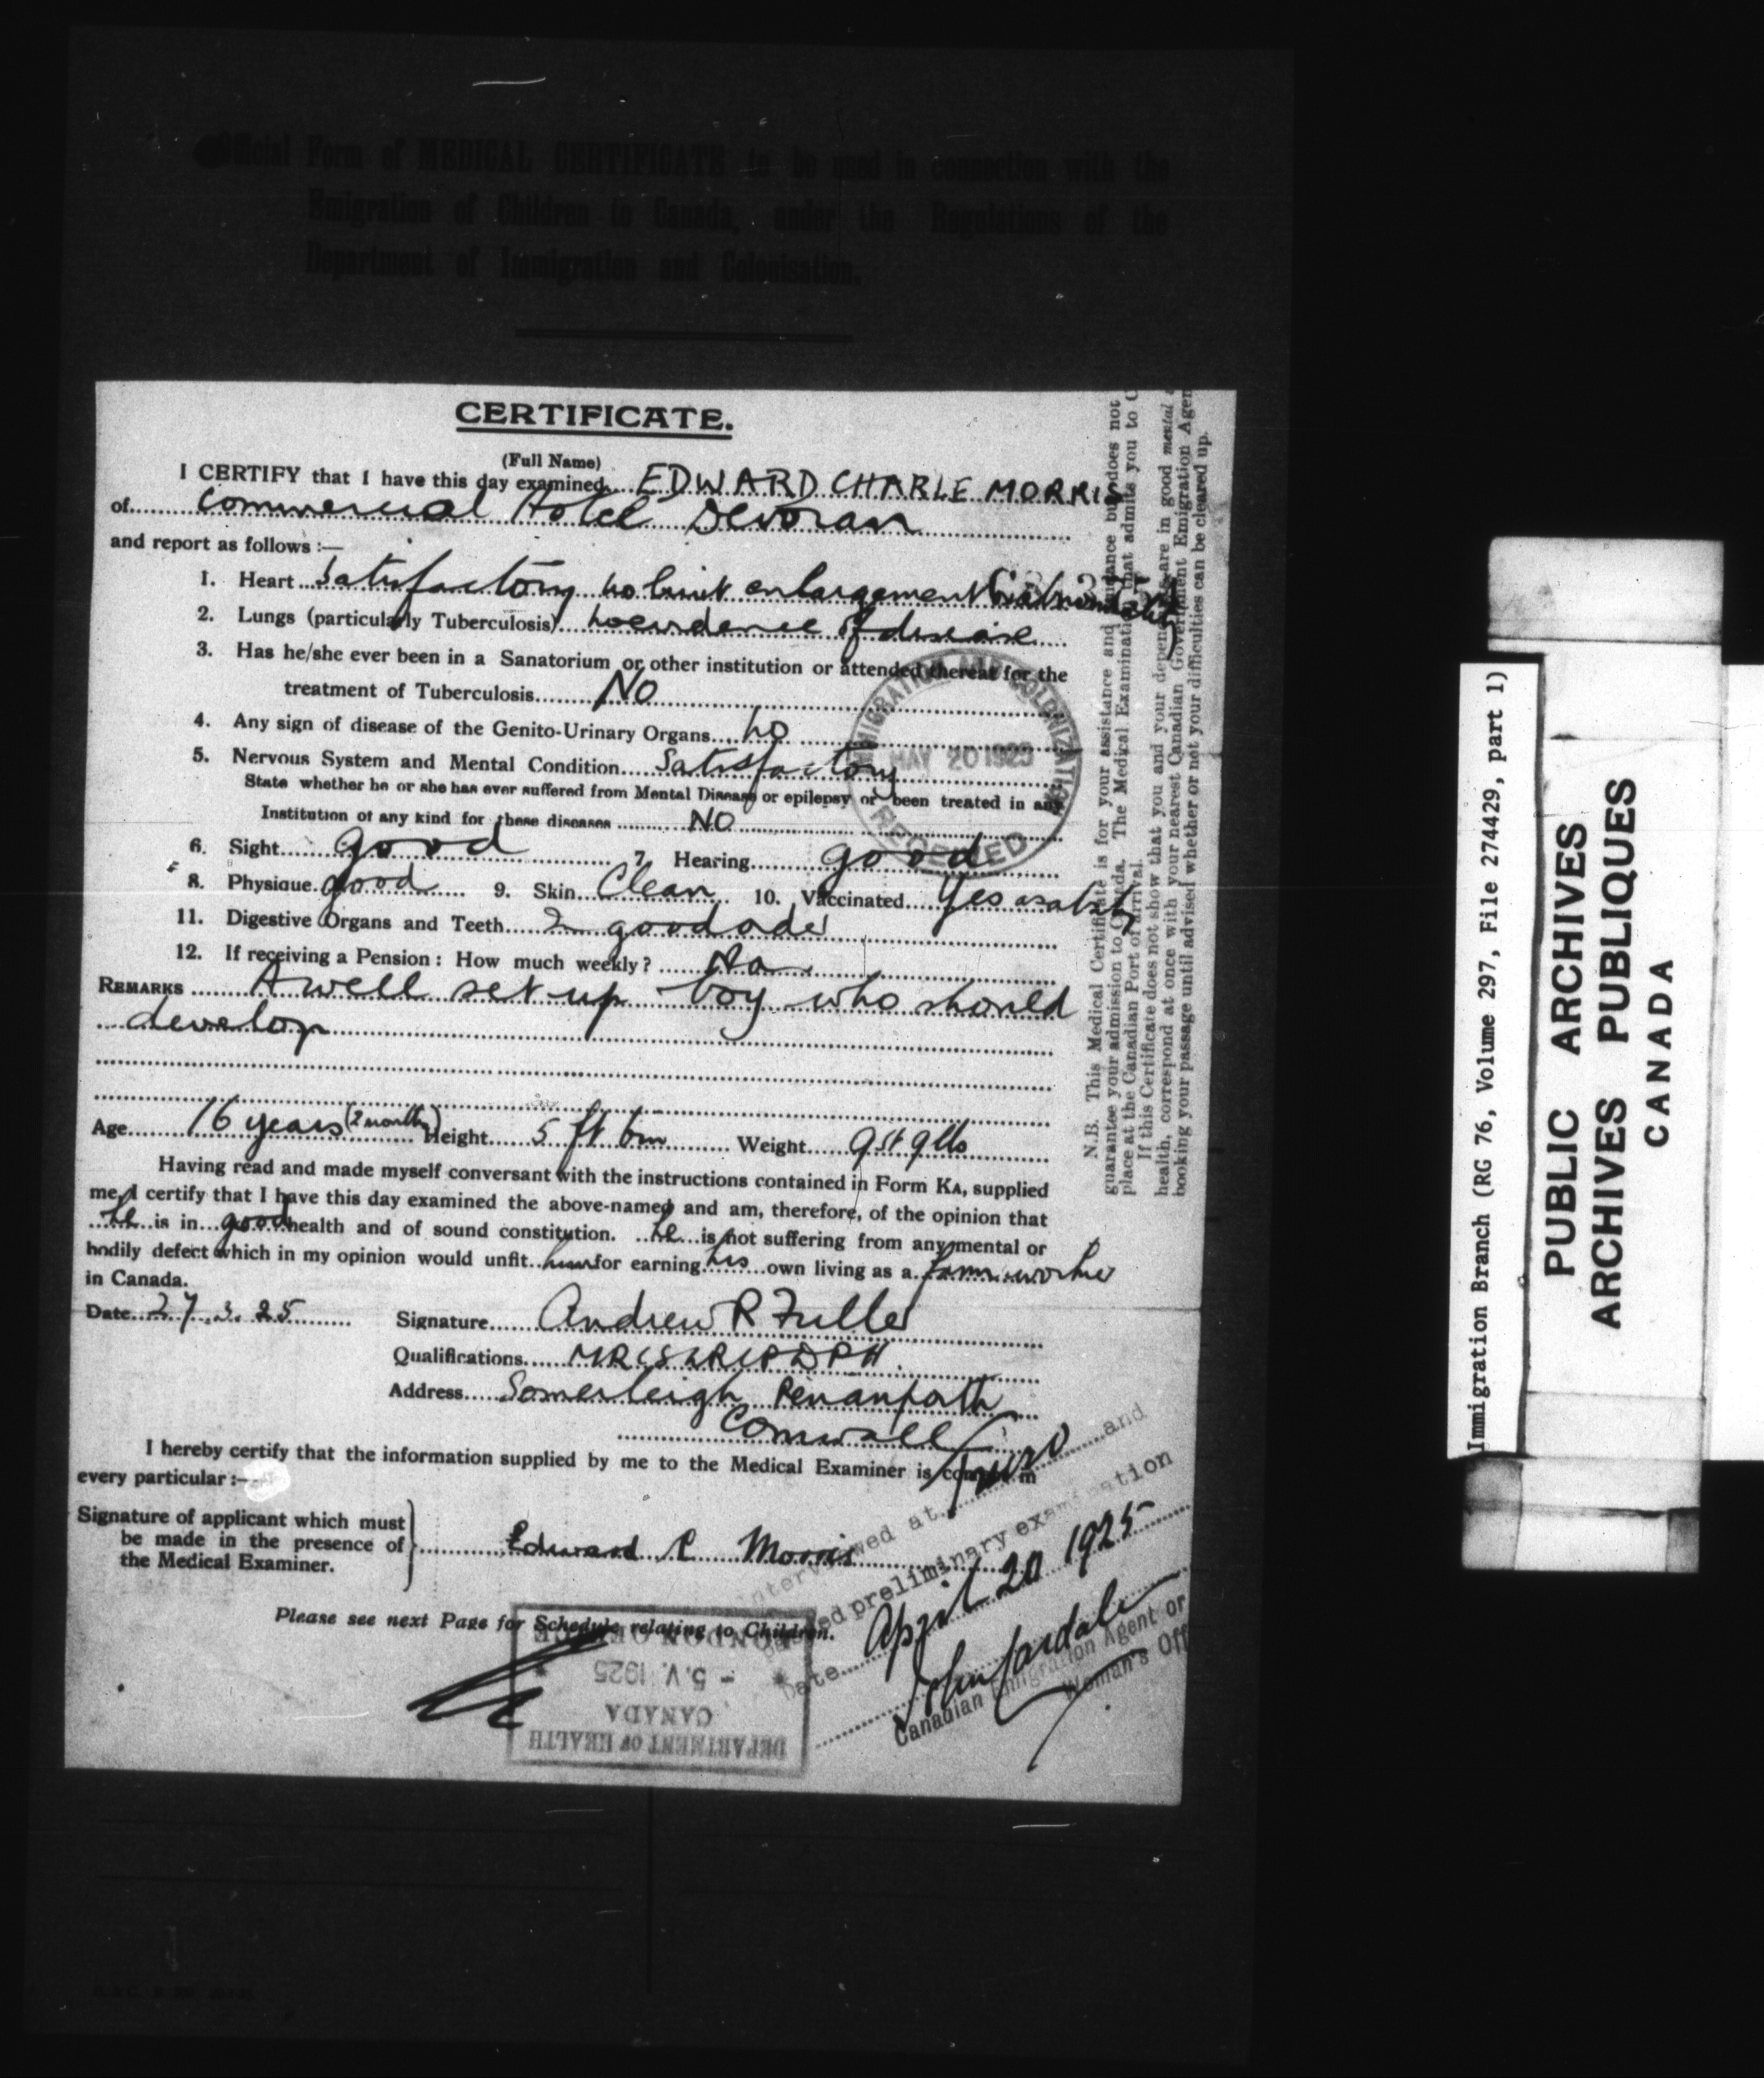 Official Form of MEDICAL CERTIFICATE to be used in connection with the
Emigration of Children to Canada, under the Regulations of the
Department of Immigration and Colonisation.
CERTIFICATE.
(Full Name)
I CERTIFY that I have this day examined EDWARD CHARLE MORRIS
of Commercial Hotel Devoran
and report as follows :—
1. Heart Satisfactory no bruit enlargement
2. Lungs (particularly Tuberculosis) no evidence of disease
3. Has he/she ever been in a Sanatorium or other institution or attended thereat for the
treatment of Tuberculosis NO
4. Any sign of disease of the Genito-Urinary Organs no
5. Nervous System and Mental Condition Satisfactory
State whether he or she has ever suffered from Mental Disease or epilepsy or been treated in any
Institution of any kind for these diseases NO
6. Sight good 7. Hearing good
8. Physique good 9. Skin Clean 10. Vaccinated Yes as a baby
11. Digestive Organs and Teeth In good order
12. If receiving a Pension : How much weekly ? No
REMARKS A well set up boy who should
develop
Age 16 years (2 months) Height 5 ft 6in Weight 9st 9lbs
Having read and made myself conversant with the instructions contained in Form KA, supplied
me, I certify that I have this day examined the above-named and am, therefore, of the opinion that
he is in good health and of sound constitution. he is not suffering from any mental or
bodily defect which in my opinion would unfit him for earning his own living as a farm worker
in Canada.
Date 27.3.25 Signature Andrew R Fuller
Qualifications MRCS LRCP DPH.
Address Somerleigh Perranporth
Cornwall
I hereby certify that the information supplied by me to the Medical Examiner is correct in
every particular :—
Signature of applicant which must
be made in the presence of
the Medical Examiner.
Edward C Morris
Please see next Page for Schedule relating to Children.
IMMIGRATION AND COLONIZATION
MAY 20 1925
RECEIVED
N.B. This Medical Certificate is for your assistance and guidance but does not
guarantee your admission to Canada. The Medical Examination that admits you to C
place at the Canadian Port of arrival.
If this Certificate does not show that you and your dependents are in good mental
health, correspond at once with your nearest Canadian Government Emigration Agen
booking your passage until advised whether or not your difficulties can be cleared up.
Interviewed at Truro and
passed preliminary examination
Date April 20 1925
Canadian Emigration Agent or
Woman's Off
DEPARTMENT OF HEALTH
CANADA
- 5 V. 1925
LONDON OFFICE
Immigration Branch (RG 76, Volume 297, File 274429, part 1)
PUBLIC ARCHIVES
ARCHIVES PUBLIQUES
CANADA